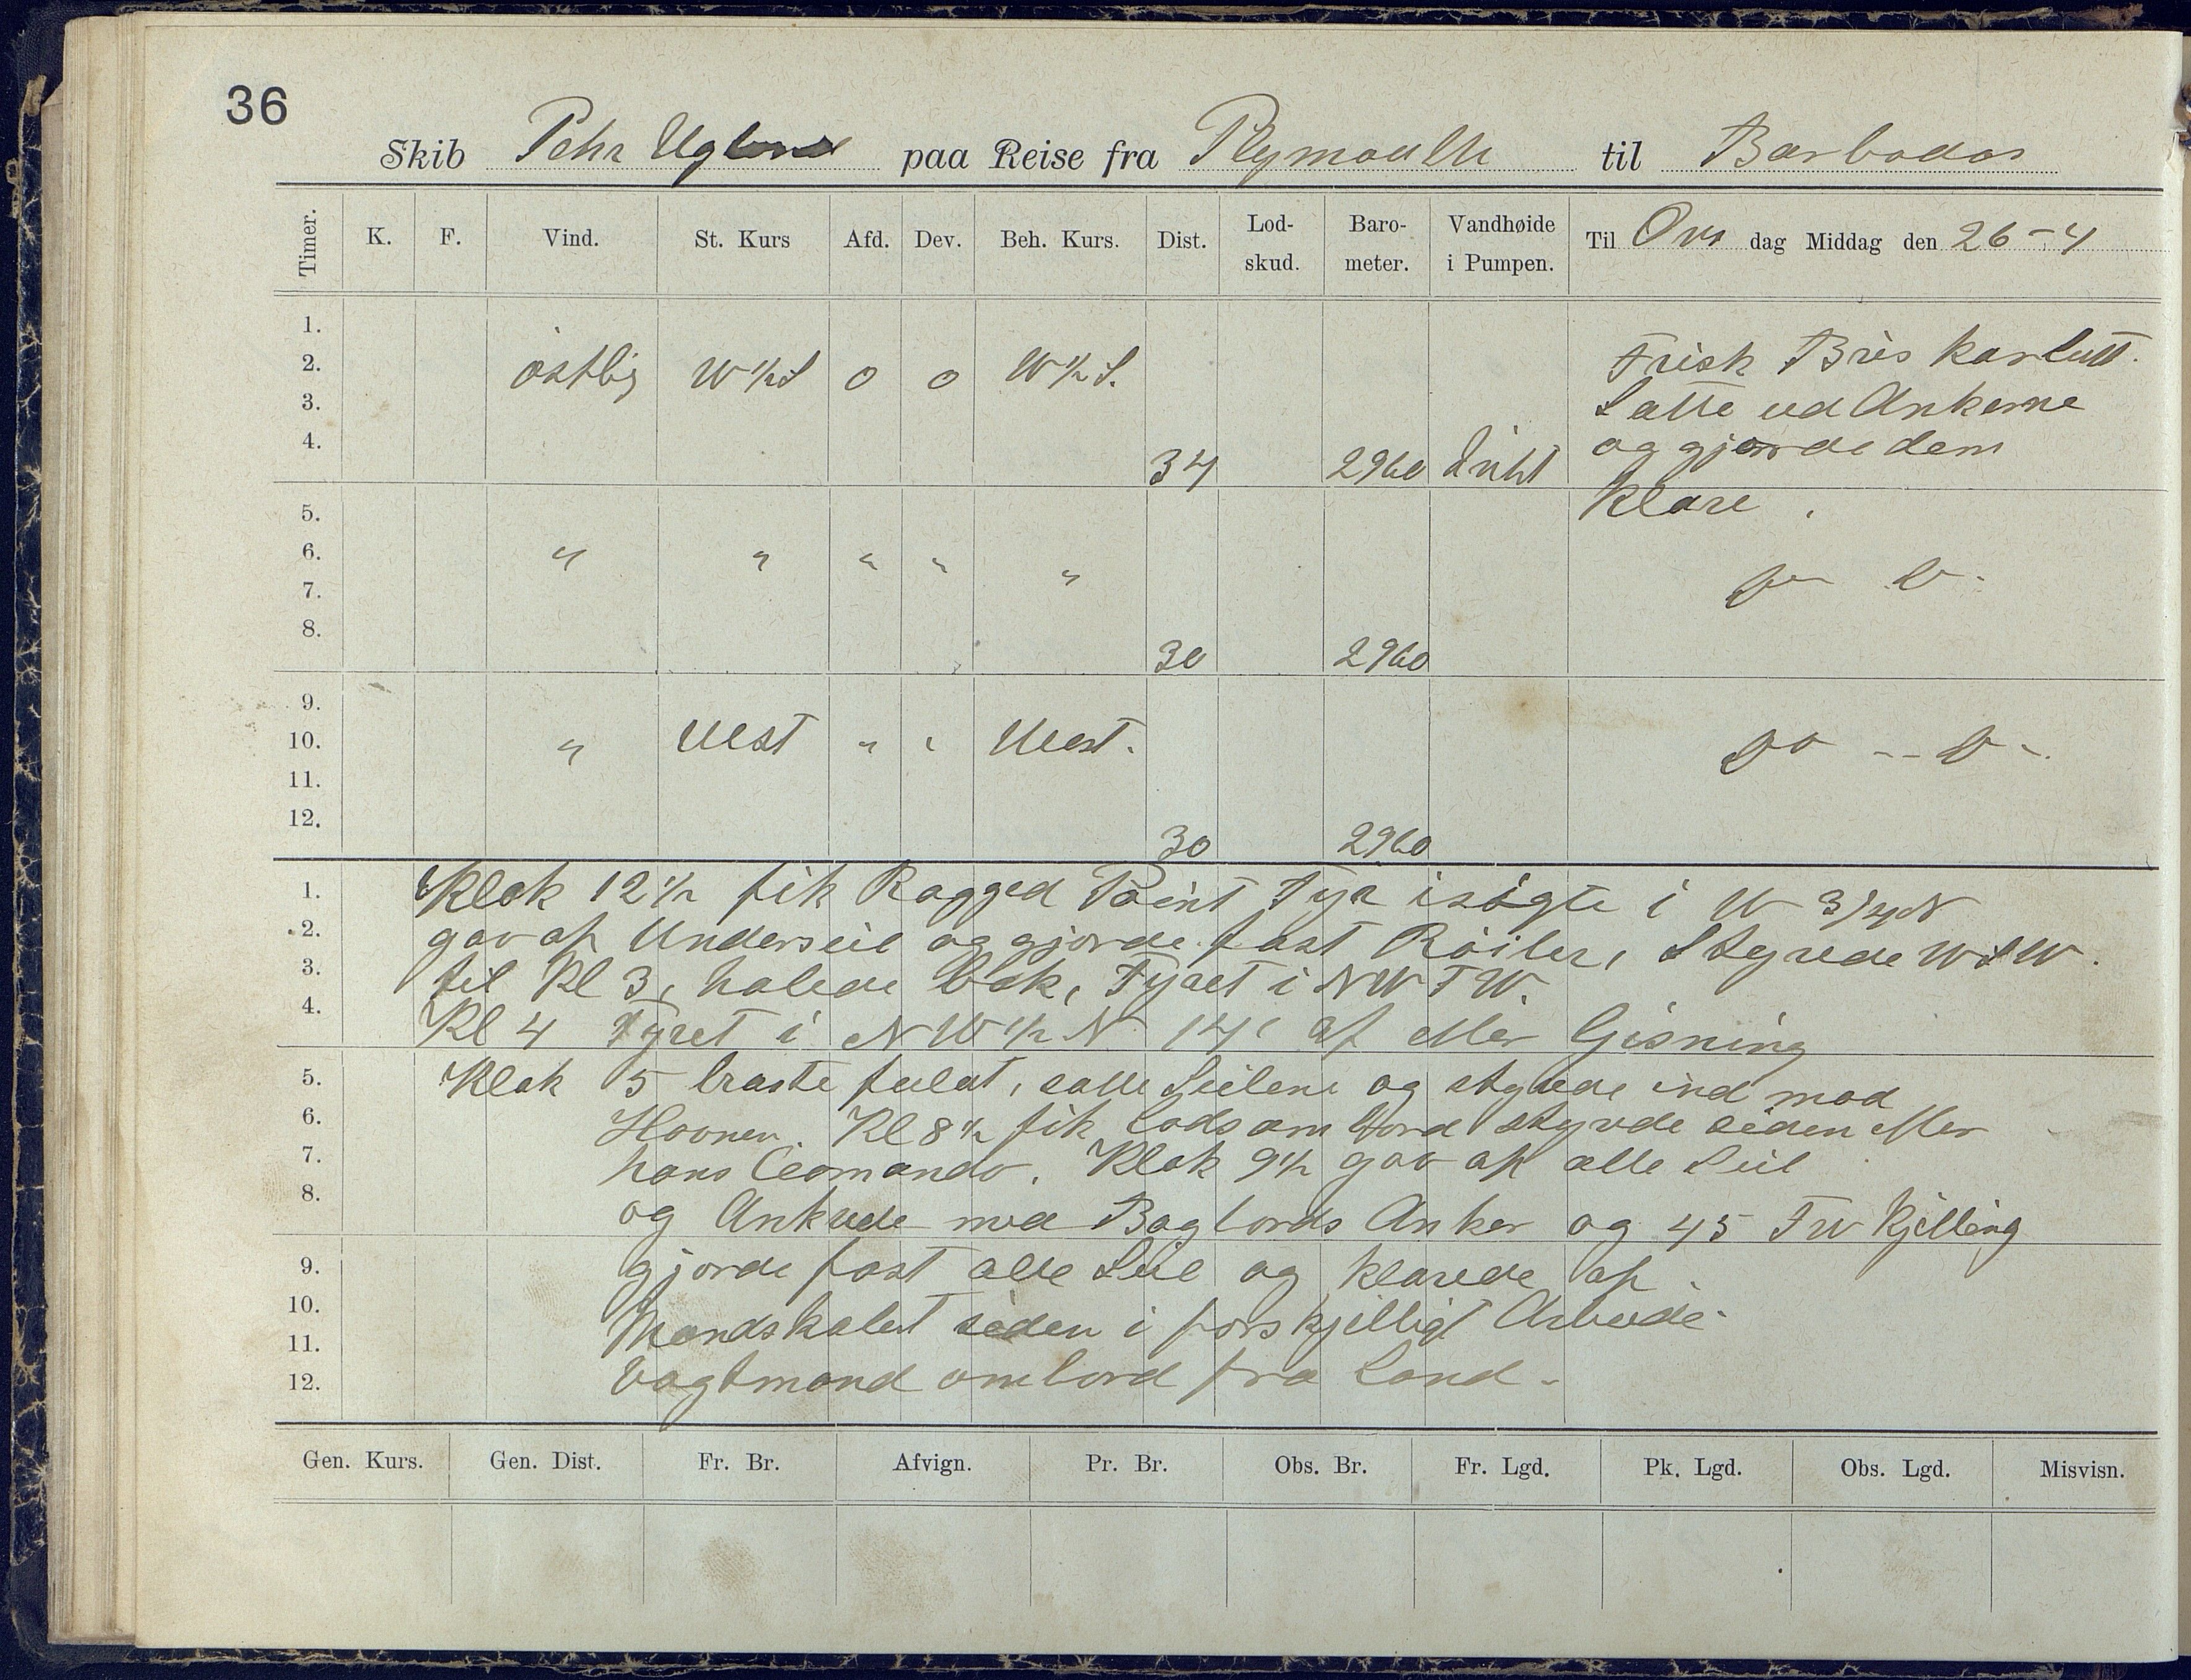 36
Skib Pehr Ugland paa Reise fra Plymouth til Barbados
Timer. K. F. Vind. St. Kurs Afd. Dev. Beh. Kurs. Dist. Lod-skud. Baro-meter. Vandhøide i Pumpen. Til Ons dag Middag den 26-4
1.
2. østlig W ½ S 0 0 W ½ S. Frisk Bris klar luft.
3. Satte ud Ankerne
4. 34 2960 og gjorde dem
5. Klare.
6. " " " " "
7.
8. 30 2960
9.
10. " Vest " " Vest.
11.
12. 30 2960
1. Klok 12 ½ fik Ragged Point Fyr isigte i W 3/4 N
2. gav op Underseil og gjorde fast Röiler, Styrede WSW.
3. til Kl 3, halede bak, Fyret i NWTW.
4. Kl 4 Fyret i NW ½ N 14' af efter Gisning
5. Klok 5 braste fuldt, satte Seilene og styrede ind mod
6. Havnen. Kl 8 ½ fik Lods om bord styrede siden efter
7. hans Comando. Klok 9 ½ gav op alle Seil
8. og Ankrede med Bagbords Anker og 45 Fv Kjetting
9. gjorde fast alle Seil og klarede op.
10. Mandskabet siden i forskjelligt Arbeide
11.
12. Vagtmand ombord fra Land.
Gen. Kurs. Gen. Dist. Fr. Br. Afvign. Pr. Br. Obs. Br. Fr. Lgd. Pk. Lgd. Obs. Lgd. Misvisn.